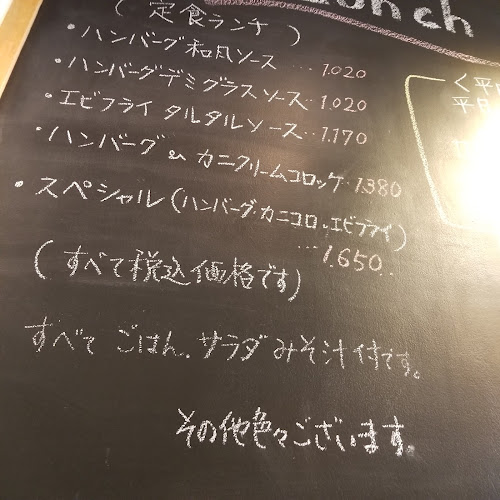 unch
(定食ランチ)
・ハンバーグ和風ソース …1,020
・ハンバーグデミグラスソース…1,020
・エビフライ タルタルソース…1,170
・ハンバーグ & カニクリームコロッケ・1,380
・スペシャル(ハンバーグ・カニコロ・エビフライ)
…1,650.
(すべて税込価格です)
すべて ごはん、サラダ みそ汁付です。
その他色々ございます。
<平
平